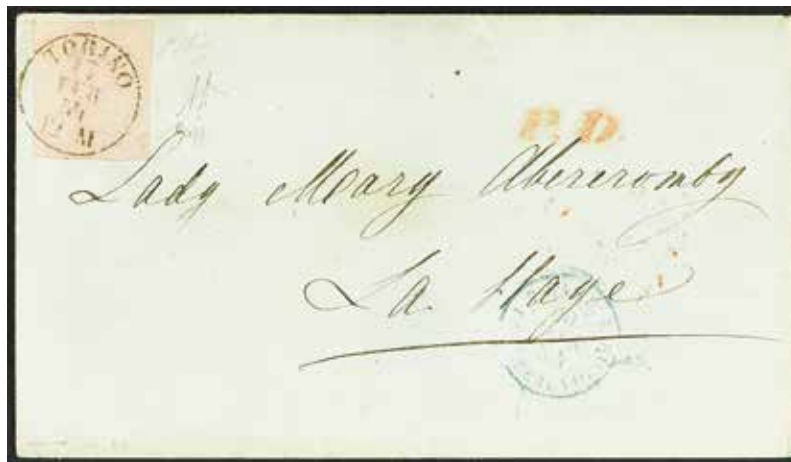 TORINO
FEB
12 M
P.D.
Lady Mary Abercromby
La Haye